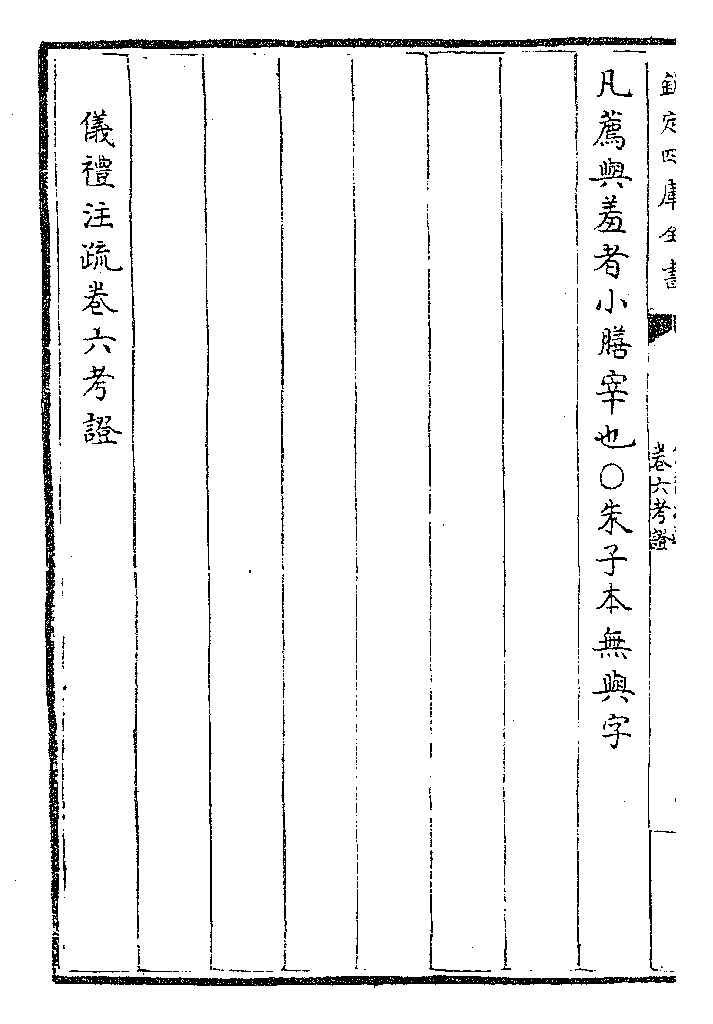 欽定四庫全書
卷六考證
凡薦與羞者小膳宰也○朱子本無與字
儀禮注疏卷六考證